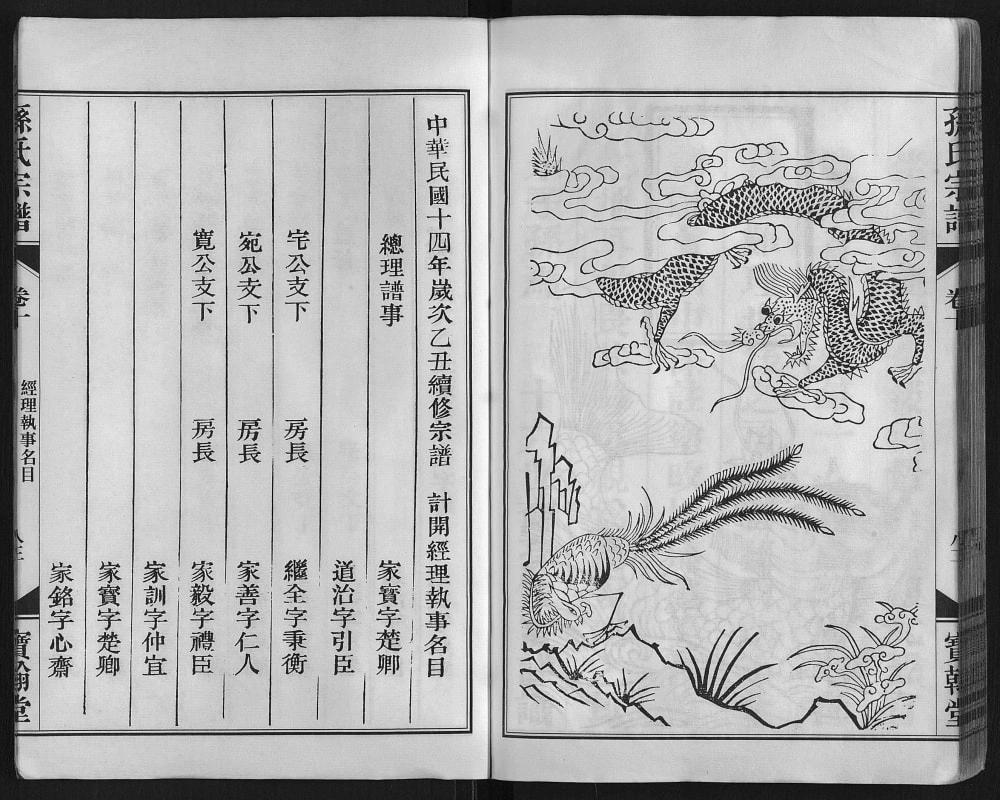 孫氏宗譜
卷一
寶翰堂
中華民國十四年歲次乙丑續修宗譜 計開經理執事名目
總理譜事 家寶字楚卿
道治字引臣
宅公支下 房長 繼全字秉衡
宛公支下 房長 家善字仁人
寬公支下 房長 家毅字禮臣
家訓字仲宜
家寶字楚卿
家銘字心齋
孫氏宗譜
卷一
經理執事名目
寶翰堂